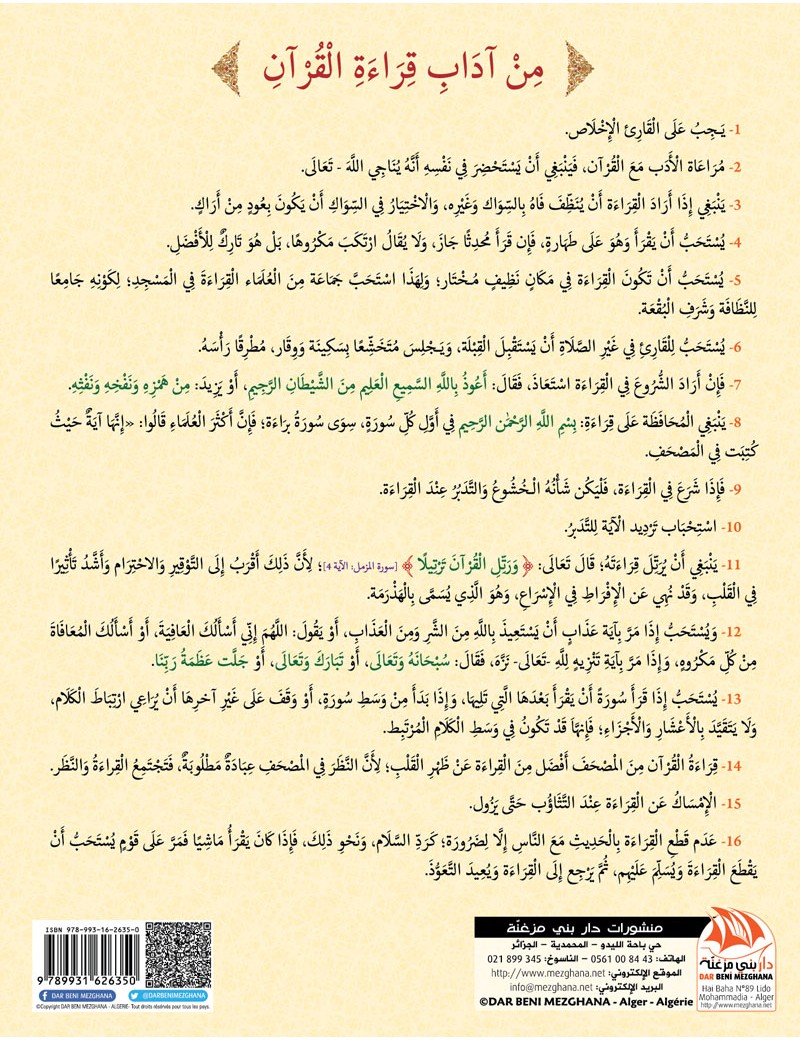 مِنْ آدَابِ قِرَاءَةِ الْقُرْآنِ
1- يَجِبُ عَلَى الْقَارِئِ الْإِخْلَاص.
2- مُرَاعَاة الْأَدَب مَعَ الْقُرْآن، فَيَنْبَغِي أَنْ يَسْتَحْضِرَ فِي نَفْسِهِ أَنَّهُ يُنَاجِي اللَّهَ - تَعَالَى.
3- يَنْبَغِي إِذَا أَرَادَ الْقِرَاءَة أَنْ يُنَظِّفَ فَاهُ بِالسِّوَاك وَغَيْرِهِ، وَالْاخْتِيَارُ فِي السِّوَاكِ أَنْ يَكُونَ بِعُودٍ مِنْ أَرَاكٍ.
4- يُسْتَحَبُّ أَنْ يَقْرَأَ وَهُوَ عَلَى طَهَارةٍ، فَإِن قَرَأَ مُحدِثًا جَازَ، وَلَا يُقَالُ ارْتَكَبَ مَكْرُوهًا، بَلْ هُوَ تَارِكٌ لِلْأَفْضَلِ.
5- يُسْتَحَبُّ أَنْ تَكُونَ الْقِرَاءَة فِي مَكَانٍ نَظِيفٍ مُخْتَار؛ وَلِهَذَا اسْتَحَبَّ جَمَاعَة مِنَ الْعُلَمَاء الْقِرَاءَةَ فِي الْمَسْجِدِ؛ لِكَوْنِهِ جَامِعًا
لِلنَّظَافَة وَشَرَفِ الْبُقْعَة.
6- يُسْتَحَبُّ لِلْقَارِئِ فِي غَيْرِ الصَّلَاةِ أَنْ يَسْتَقْبِلَ الْقِبْلَة، وَيَجْلِسَ مُتَخَشِّعًا بِسَكِينَة وَوِقَار، مُطْرِقًا رَأْسُهُ.
7- فَإِنْ أَرَادَ الشُّرُوعَ فِي الْقِرَاءَة اسْتَعَاذَ، فَقَالَ: أَعُوذُ بِاللَّهِ السَّمِيعِ الْعَلِيمِ مِنَ الشَّيْطَانِ الرَّجِيمِ، أَوْ يَزِيدَ: مِنْ هَمْزِهِ وَنَفْخِهِ وَنَفْثِهِ.
8- يَنْبَغِي الْمُحَافَظَة عَلَى قِرَاءَةِ: بِسْمِ اللَّهِ الرَّحْمَٰنِ الرَّحِيمِ فِي أَوَّلِ كُلِّ سُورَةٍ، سِوَى سُورَةُ بَرَاءَة؛ فَإِنَّ أَكْثَرَ الْعُلَمَاءِ قَالُوا: «إِنَّهَا آيَةٌ حَيْثُ
كُتِبَت فِي الْمَصْحَفِ.
9- فَإِذَا شَرَعَ فِي الْقِرَاءَة، فَلْيَكُن شَأْنُهُ الْخُشُوعُ وَالتَّدَبُرُ عِنْدَ الْقِرَاءَة.
10- اسْتِحْبَاب تَرْدِيد الْآيَة لِلتَّدَبُرُ.
11- يَنْبَغِي أَنْ يُرَتِّلَ قِرَاءَتَهُ؛ قَالَ تَعَالَى: ﴿ وَرَتِّلِ الْقُرْآنَ تَرْتِيلًا ﴾ [سورة المزمل: الآية 4]؛ لِأَنَّ ذَلِكَ أَقْرَبُ إِلَى التَّوْقِيرِ وَالاحْتِرَام وَأَشَّدُ تَأْثِيرًا
فِي الْقَلْبِ، وَقَدْ نُهِي عَنِ الْإِفْرَاطِ فِي الْإِسْرَاعِ، وَهُوَ الَّذِي يُسَمَّى بِالْهَذْرَمَة.
12- وَيُسْتَحَبُّ إِذَا مَرَّ بِآيَة عَذَابٍ أَنْ يَسْتَعِيذَ بِاللَّهِ مِنَ الشَّرِ وَمِنَ الْعَذَابِ، أَوْ يَقُولَ: اللَّهُمَ إِنِّي أَسْأَلُكَ الْعَافِيَةَ، أَوْ أَسْأَلُكَ الْمُعَافَاةَ
مِنْ كُلِّ مَكْرُوهٍ، وَإِذَا مَرَّ بِآيَةِ تَنْزِيهٍ لِلَّهِ -تَعَالَى- نَزَّهَ، فَقَالَ: سُبْحَانَهُ وَتَعَالَى، أَوْ تَبَارَكَ وَتَعَالَى، أَوْ جَلَّت عَظَمَةُ رَبِّنَا.
13- يُسْتَحَبُّ إِذَا قَرَأَ سُورَةً أَنْ يَقْرَأَ بَعْدَهَا الَّتِي تَلِيهَا، وَإِذَا بَدَأَ مِنْ وَسَطِ سُورَةٍ، أَوْ وَقَفَ عَلَى غَيْرِ آخِرِهَا أَنْ يُرَاعِي ارْتِبَاطَ الْكَلَام،
وَلَا يَتَقَيَّدَ بِالْأَعْشَارِ وَالْأَجْزَاءِ؛ فَإِنهَّا قَدْ تَكُونُ فِي وَسَطِ الْكَلَامِ الْمُرْتَبِط.
14- قِرَاءَةُ الْقُرْآن مِنَ الْمصْحَف أَفْضَل مِنَ الْقِراءَة عَنْ ظَهْرِ الْقَلْبِ؛ لِأَنَّ النَّظَرَ فِي الْمصْحَفِ عِبَادَةٌ مَطْلُوبَةٌ، فَتَجْتَمِعُ الْقِرَاءَةُ وَالنَّظَر.
15- الْإِمْسَاكُ عَنِ الْقِرَاءَةِ عِنْدَ التَّثَاؤُب حَتَّى يَزُول.
16- عَدَم قَطْعِ الْقِرَاءَة بِالْحَدِيثِ مَعَ النَّاسِ إِلَّا لِضَرُورَة؛ كَرَدِّ السَّلَام، وَنَحْوِ ذَلِكَ، فَإِذَا كَانَ يَقْرَأُ مَاشِيًا فَمَرَّ عَلَى قَوْمٍ يُسْتَحَبُّ أَنْ
يَقْطَعَ الْقِرَاءَةَ وَيُسَلِّمَ عَلَيْهِم، ثُمَّ يَرْجِع إِلَى الْقِرَاءَة وَيُعِيدَ التَّعَوُّذَ.
منشورات دار بني مزغنّة
حي باحة الليدو - المحمدية - الجزائر
الهاتف: 43 84 00 0561 - الناسوخ: 345 899 021
الموقع الإلكتروني: http://www.mezghana.net
البريد الإلكتروني: info@mezghana.net
©DAR BENI MEZGHANA - Alger - Algérie
دار بني مزغنّة
DAR BENI MEZGHANA
Hai Baha N°89 Lido
Mohammadia - Alger
http://www.mezghana.net
ISBN 978-993-16-2635-0
9 789931 626350
DAR BENI MEZGHANA
@DARBENIMEZGHANA
©Copyright DAR BENI MEZGHANA - ALGERIE- Tout droits réservés pour tous les pays.